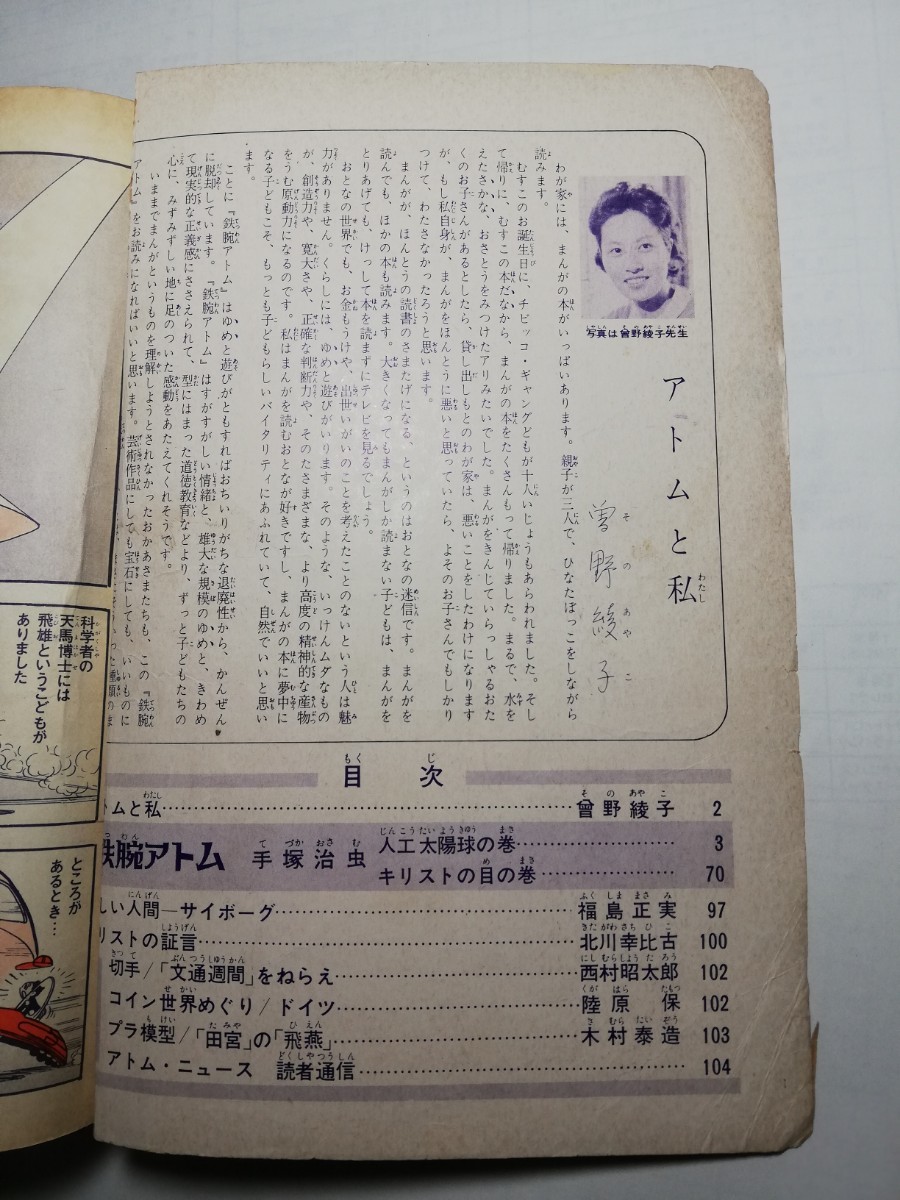 アトムと私
曾野綾子
写真は曾野綾子先生
わが家には、まんがの本がいっぱいあります。親子が三人で、ひなたぼっこをしながら
読みます。
むすこのお誕生日に、チビッコ・ギャングどもが十人いじょうもあらわれました。そし
て帰りに、むすこの本だなから、まんがの本をたくさんもって帰りました。まるで、水を
えたさかな、おさとうをみつけたアリみたいでした。まんがをきんじていらっしゃるおた
くのお子さんがあるとしたら、貸し出しもとのわが家は、悪いことをしたわけになります
が、もし私自身が、まんがをほんとうに悪いと思っていたら、よそのお子さんでもしかり
つけて、わたさなかったろうと思います。
まんがが、ほんとうの読書のさまたげになる、というのはおとなの迷信です。まんがを
読んでも、ほかの本も読みます。大きくなってもまんがしか読まない子どもは、まんがを
とりあげても、けっして本を読まずにテレビを見るでしょう。
おとなの世界でも、お金もうけや、出世いがいのことを考えたことのないという人は魅
力がありません。くらしには、ゆめと遊びがいります。そのような、いっけんムダなもの
が、創造力や、寛大さや、正確な判断力や、そのたさまざまな、より高度の精神的な産物
をうむ原動力になるのです。私はまんがを読むおとなが好きですし、まんがの本に夢中に
なる子どもこそ、もっとも子どもらしいバイタリティにあふれていて、自然でいいと思い
ます。
ことに『鉄腕アトム』はゆめと遊びがともすればおちいりがちな退廃性から、かんぜん
に脱却しています。『鉄腕アトム』はすがすがしい情緒と、雄大な規模のゆめと、きわめ
て現実的な正義感にささえられて、型にはまった道徳教育などより、ずっと子どもたちの
心に、みずみずしい地に足のついた感動をあたえてくれそうです。
いままでまんがというものを理解しようとされなかったおかあさまたちも、この『鉄腕
アトム』をお読みになればいいと思います。芸術作品にしても宝石にしても、いいものに
目次
トムと私 曾野綾子 2
鉄腕アトム 手塚治虫 人工太陽球の巻 3
キリストの目の巻 70
しい人間―サイボーグ 福島正実 97
リストの証言 北川幸比古 100
切手/「文通週間」をねらえ 西村昭太郎 102
コイン世界めぐり/ドイツ 陸原保 102
プラ模型/「田宮」の「飛燕」 木村泰造 103
アトム・ニュース 読者通信 104
科学者の
天馬博士には
飛雄というこどもが
ありました
ところが
あるとき…